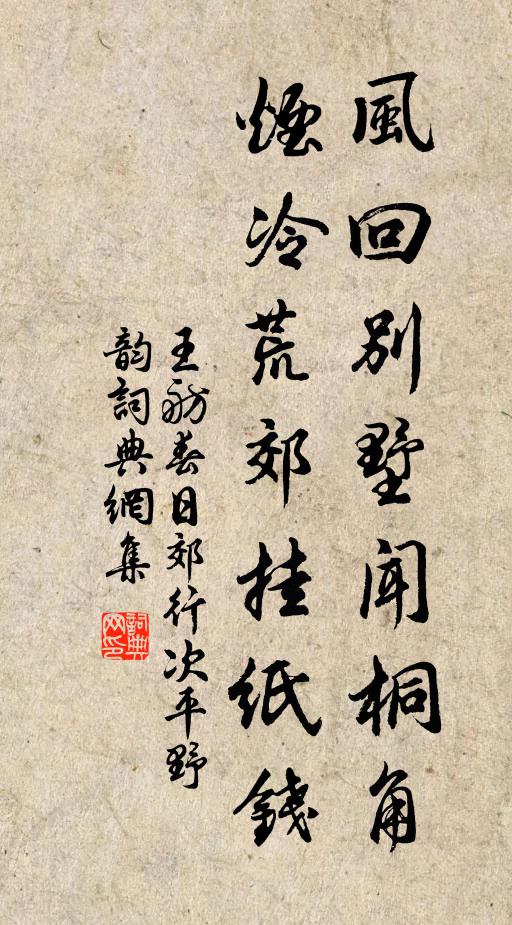 風回別墅聞桐角
煙冷荒郊挂紙錢
王舫春日郊行次平野
韵詞典網集
詞典网印